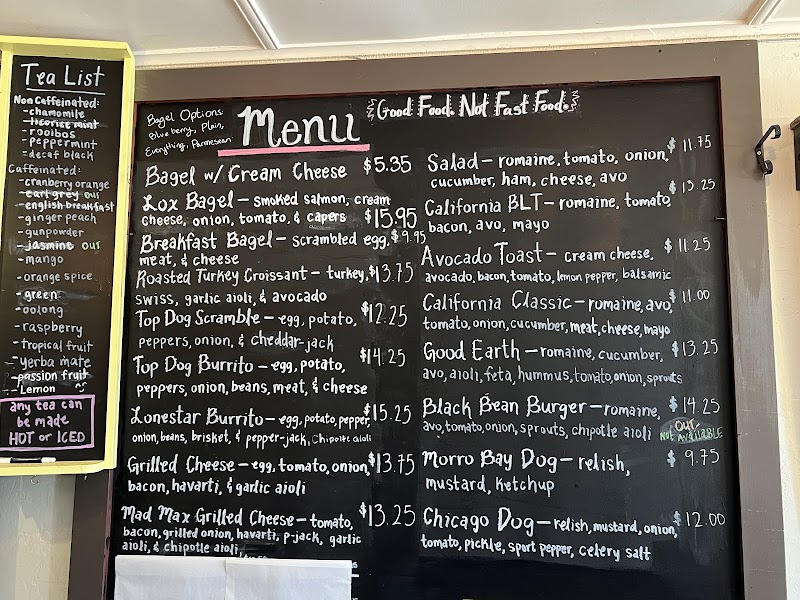 Tea List
Non Caffeinated:
- chamomile
- licorice mint
- rooibos
- peppermint
- decaf black
Caffeinated:
- cranberry orange
- earl grey our
- english breakfast
- ginger peach
- gunpowder
- jasmine our
- mango
- orange spice
- green
- oolong
- raspberry
- tropical fruit
- yerba mate
- passion fruit
- Lemon
any tea can
be made
HOT or ICED
Bagel Options
Blueberry, Plain,
Everything, Parmesean
Menu
Good Food. Not Fast Food.
Bagel w/ Cream Cheese $5.35
Lox Bagel - smoked salmon, cream
cheese, onion, tomato, & capers $15.95
Breakfast Bagel - scrambled egg, $9.95
meat, & cheese
Roasted Turkey Croissant - turkey, $13.75
swiss, garlic aioli, & avocado
Top Dog Scramble - egg, potato, $12.25
peppers, onion, & cheddar-jack
Top Dog Burrito - egg, potato, $14.25
peppers, onion, beans, meat, & cheese
Lonestar Burrito - egg, potato, pepper, $15.25
onion, beans, brisket, & pepper-jack, Chipotle aioli
Grilled Cheese - egg, tomato, onion, $13.75
bacon, havarti, & garlic aioli
Mad Max Grilled Cheese - tomato, $13.25
bacon, grilled onion, havarti, p-jack, garlic
aioli, & chipotle aioli
Salad - romaine, tomato, onion, $11.75
cucumber, ham, cheese, avo
California BLT - romaine, tomato, $13.25
bacon, avo, mayo
Avocado Toast - cream cheese, $11.25
avocado, bacon, tomato, lemon pepper, balsamic
California Classic - romaine, avo, $11.00
tomato, onion, cucumber, meat, cheese, mayo
Good Earth - romaine, cucumber, $13.25
avo, aioli, feta, hummus, tomato, onion, sprouts
Black Bean Burger - romaine, $14.25
avo, tomato, onion, sprouts, chipotle aioli our
Not AVAILABLE
Morro Bay Dog - relish, $9.75
mustard, ketchup
Chicago Dog - relish, mustard, onion, $12.00
tomato, pickle, sport pepper, celery salt